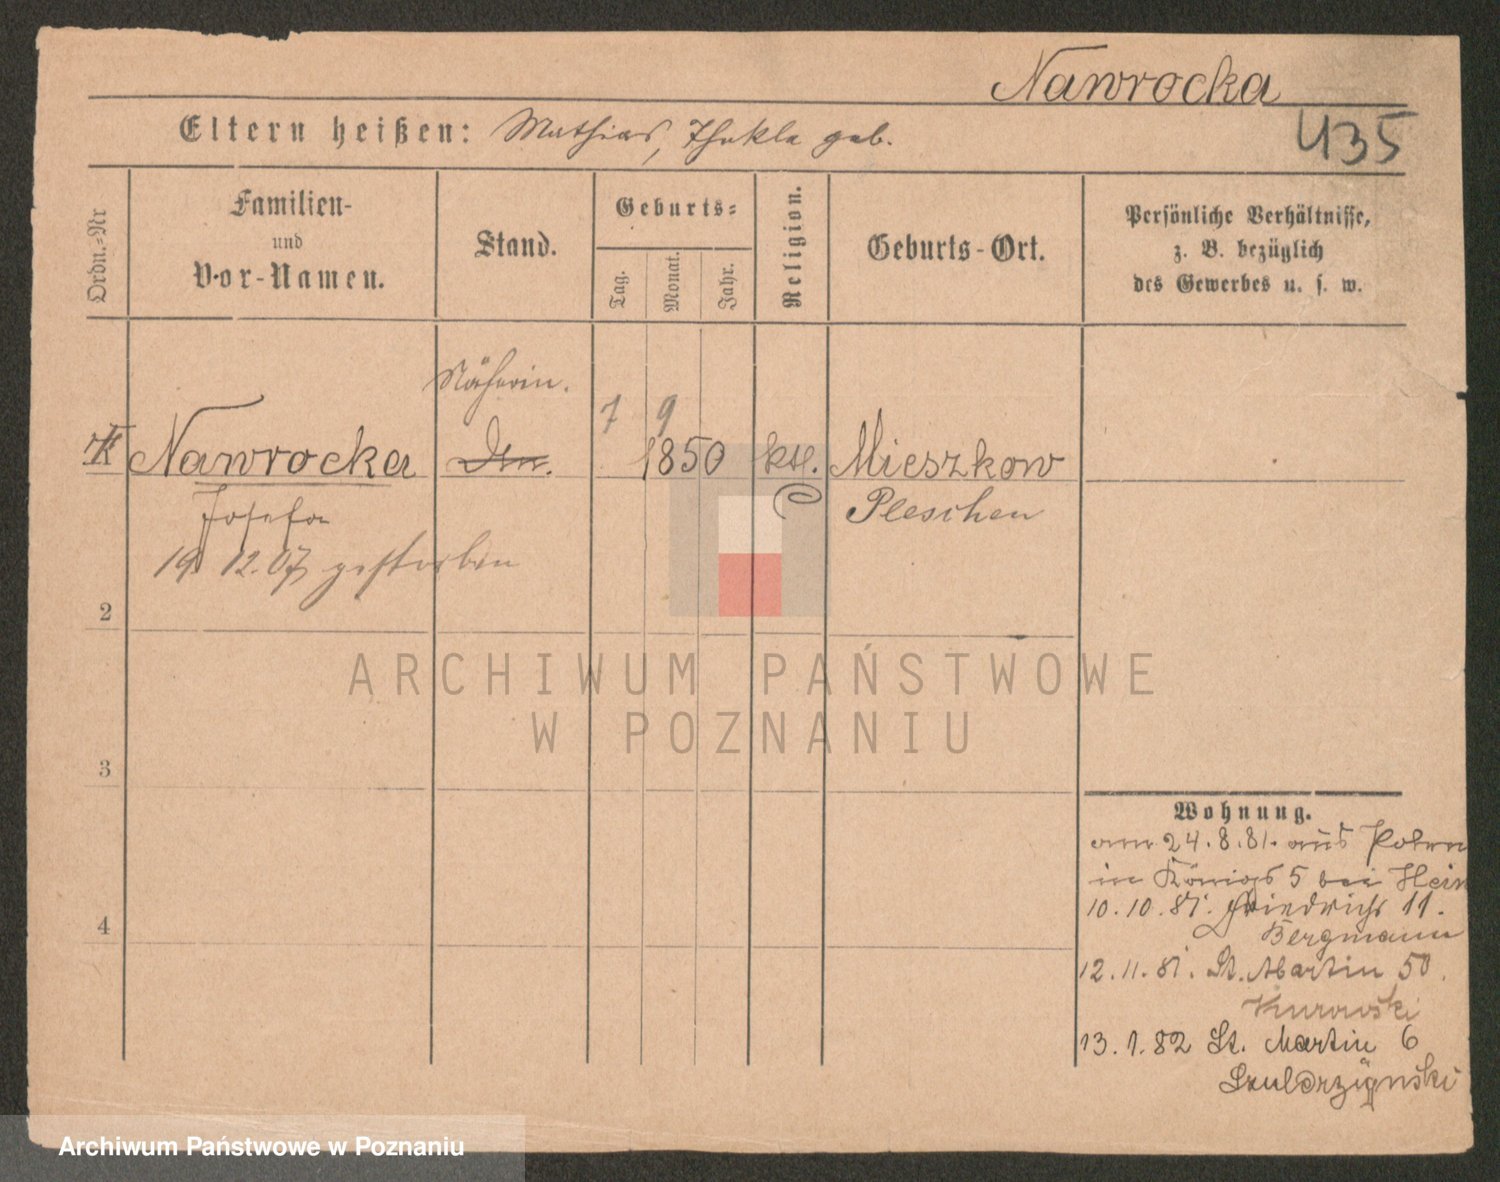 Nawrocka
435
Eltern heißen: Mathias, Thekla geb.
Ordn.=Nr
Familien-
und
Vor-Namen.
Stand.
Geburts=
Tag.
Monat.
Jahr.
Religion.
Geburts-Ort.
Persönliche Verhältnisse,
z. B. bezüglich
des Gewerbes u. s. w.
Näherin.
7 9
Nawrocka 1850 kth. Mieszkow
Josefa Pleschen
19 12.07 gestorben
2
3
4
ARCHIWUM PAŃSTWOWE
W POZNANIU
Wohnung.
am 24.8.81. aus Polen
in Königs 5 bei Hein
10.10.81. Friedrichs 11.
Bergmann
12.11.81. St. Martin 50.
Kurowski
13.1.82 St. Martin 6
Szuldrzynski
Archiwum Państwowe w Poznaniu